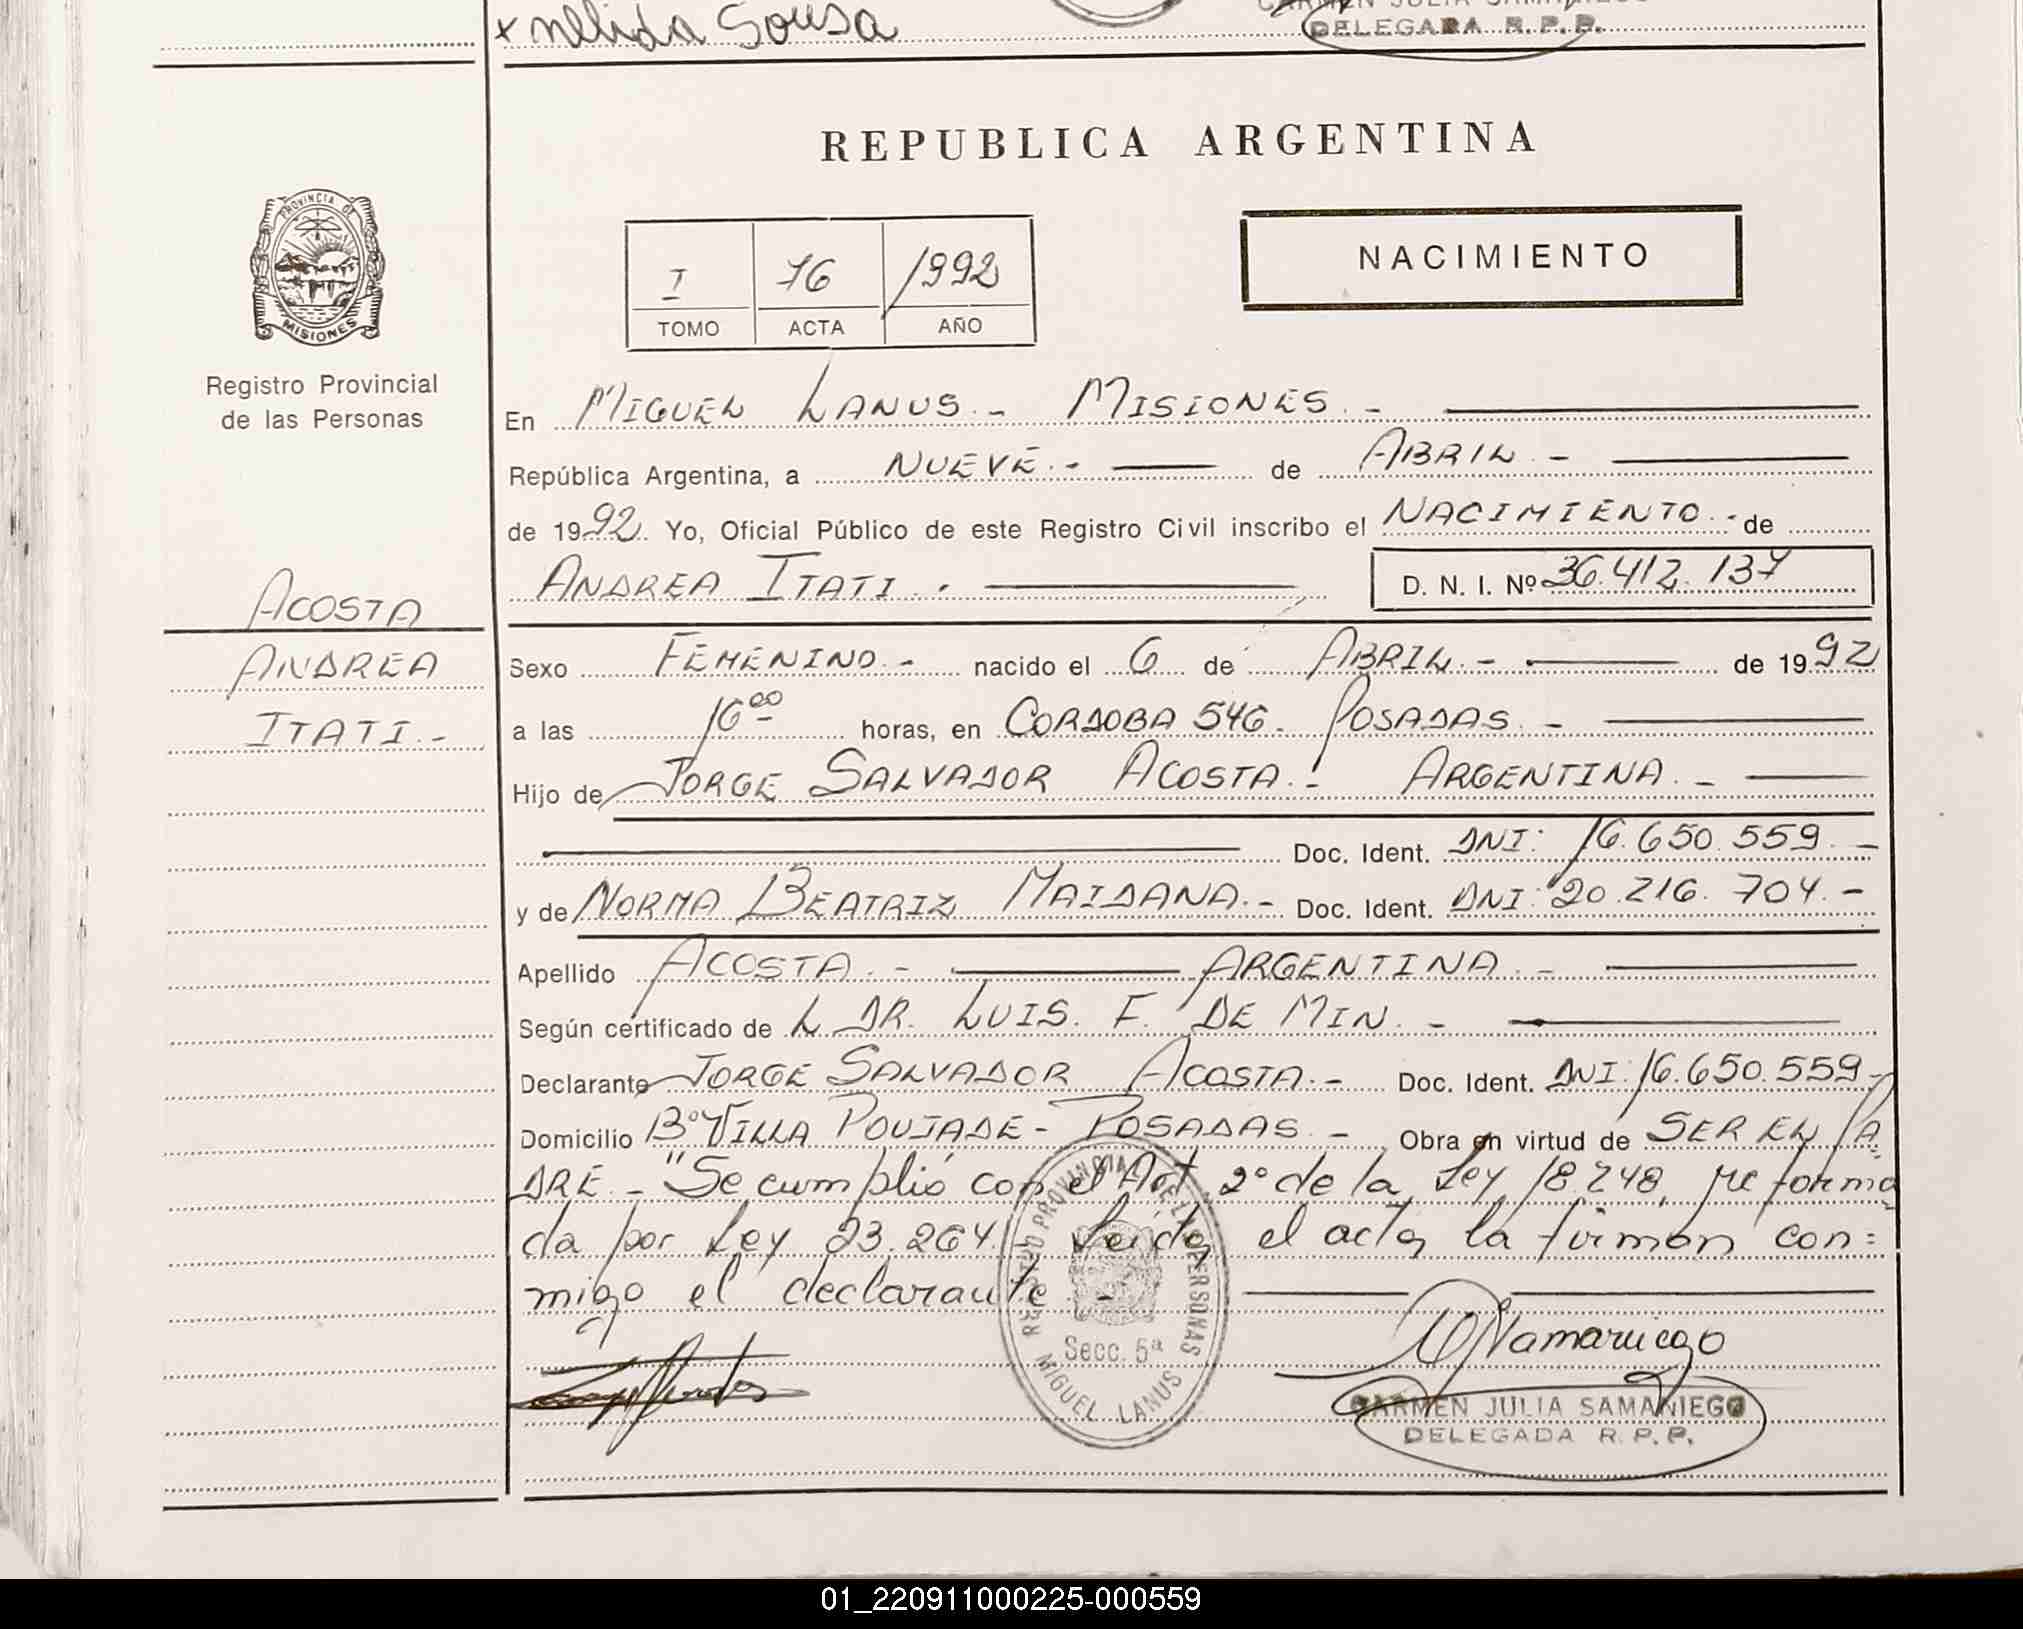 x Nélida Sousa
DELEGADA R.P.P.
REPUBLICA ARGENTINA
PROVINCIA DE MISIONES
Registro Provincial
de las Personas
I 76 1992
TOMO ACTA AÑO
NACIMIENTO
En MIGUEL LANUS.- MISIONES.-
República Argentina, a NUEVE.- de ABRIL.-
de 1992. Yo, Oficial Público de este Registro Civil inscribo el NACIMIENTO.- de
ANDREA ITATI.- D. N. I. Nº 36.412.137
ACOSTA
ANDREA
ITATI.-
Sexo FEMENINO.- nacido el 6 de ABRIL.- de 1992
a las 16 00 horas, en CORDOBA 546. POSADAS.-
Hijo de JORGE SALVADOR ACOSTA.- ARGENTINA.-
Doc. Ident. DNI: 16.650.559.-
y de NORMA BEATRIZ MAIDANA.- Doc. Ident. DNI: 20.216.704.-
Apellido ACOSTA.- ARGENTINA.-
Según certificado de L DR. LUIS. F. DE MIN.-
Declarante JORGE SALVADOR ACOSTA.- Doc. Ident. DNI: 16.650.559-
Domicilio Bº VILLA POUJADE- POSADAS.- Obra en virtud de SER EL PA
DRE.- "Se cumplió con el Art 2º de la Ley 18.248, reforma
da por Ley 23.264. Leida el acta la firman con=
migo el declarante.-
REGISTRO PROVINCIAL DE LAS PERSONAS
Secc. 5ª
MIGUEL LANUS
CJSamaniego
CARMEN JULIA SAMANIEGO
DELEGADA R.P.P.
01_220911000225-000559